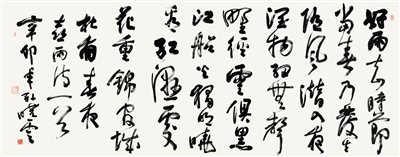 好雨知時節
當春乃發生
隨風潛入夜
潤物細無聲
野徑雲俱黑
江船火獨明曉
看紅濕處
花重錦官城
杜甫春夜
喜雨詩一首
辛卯曉雲